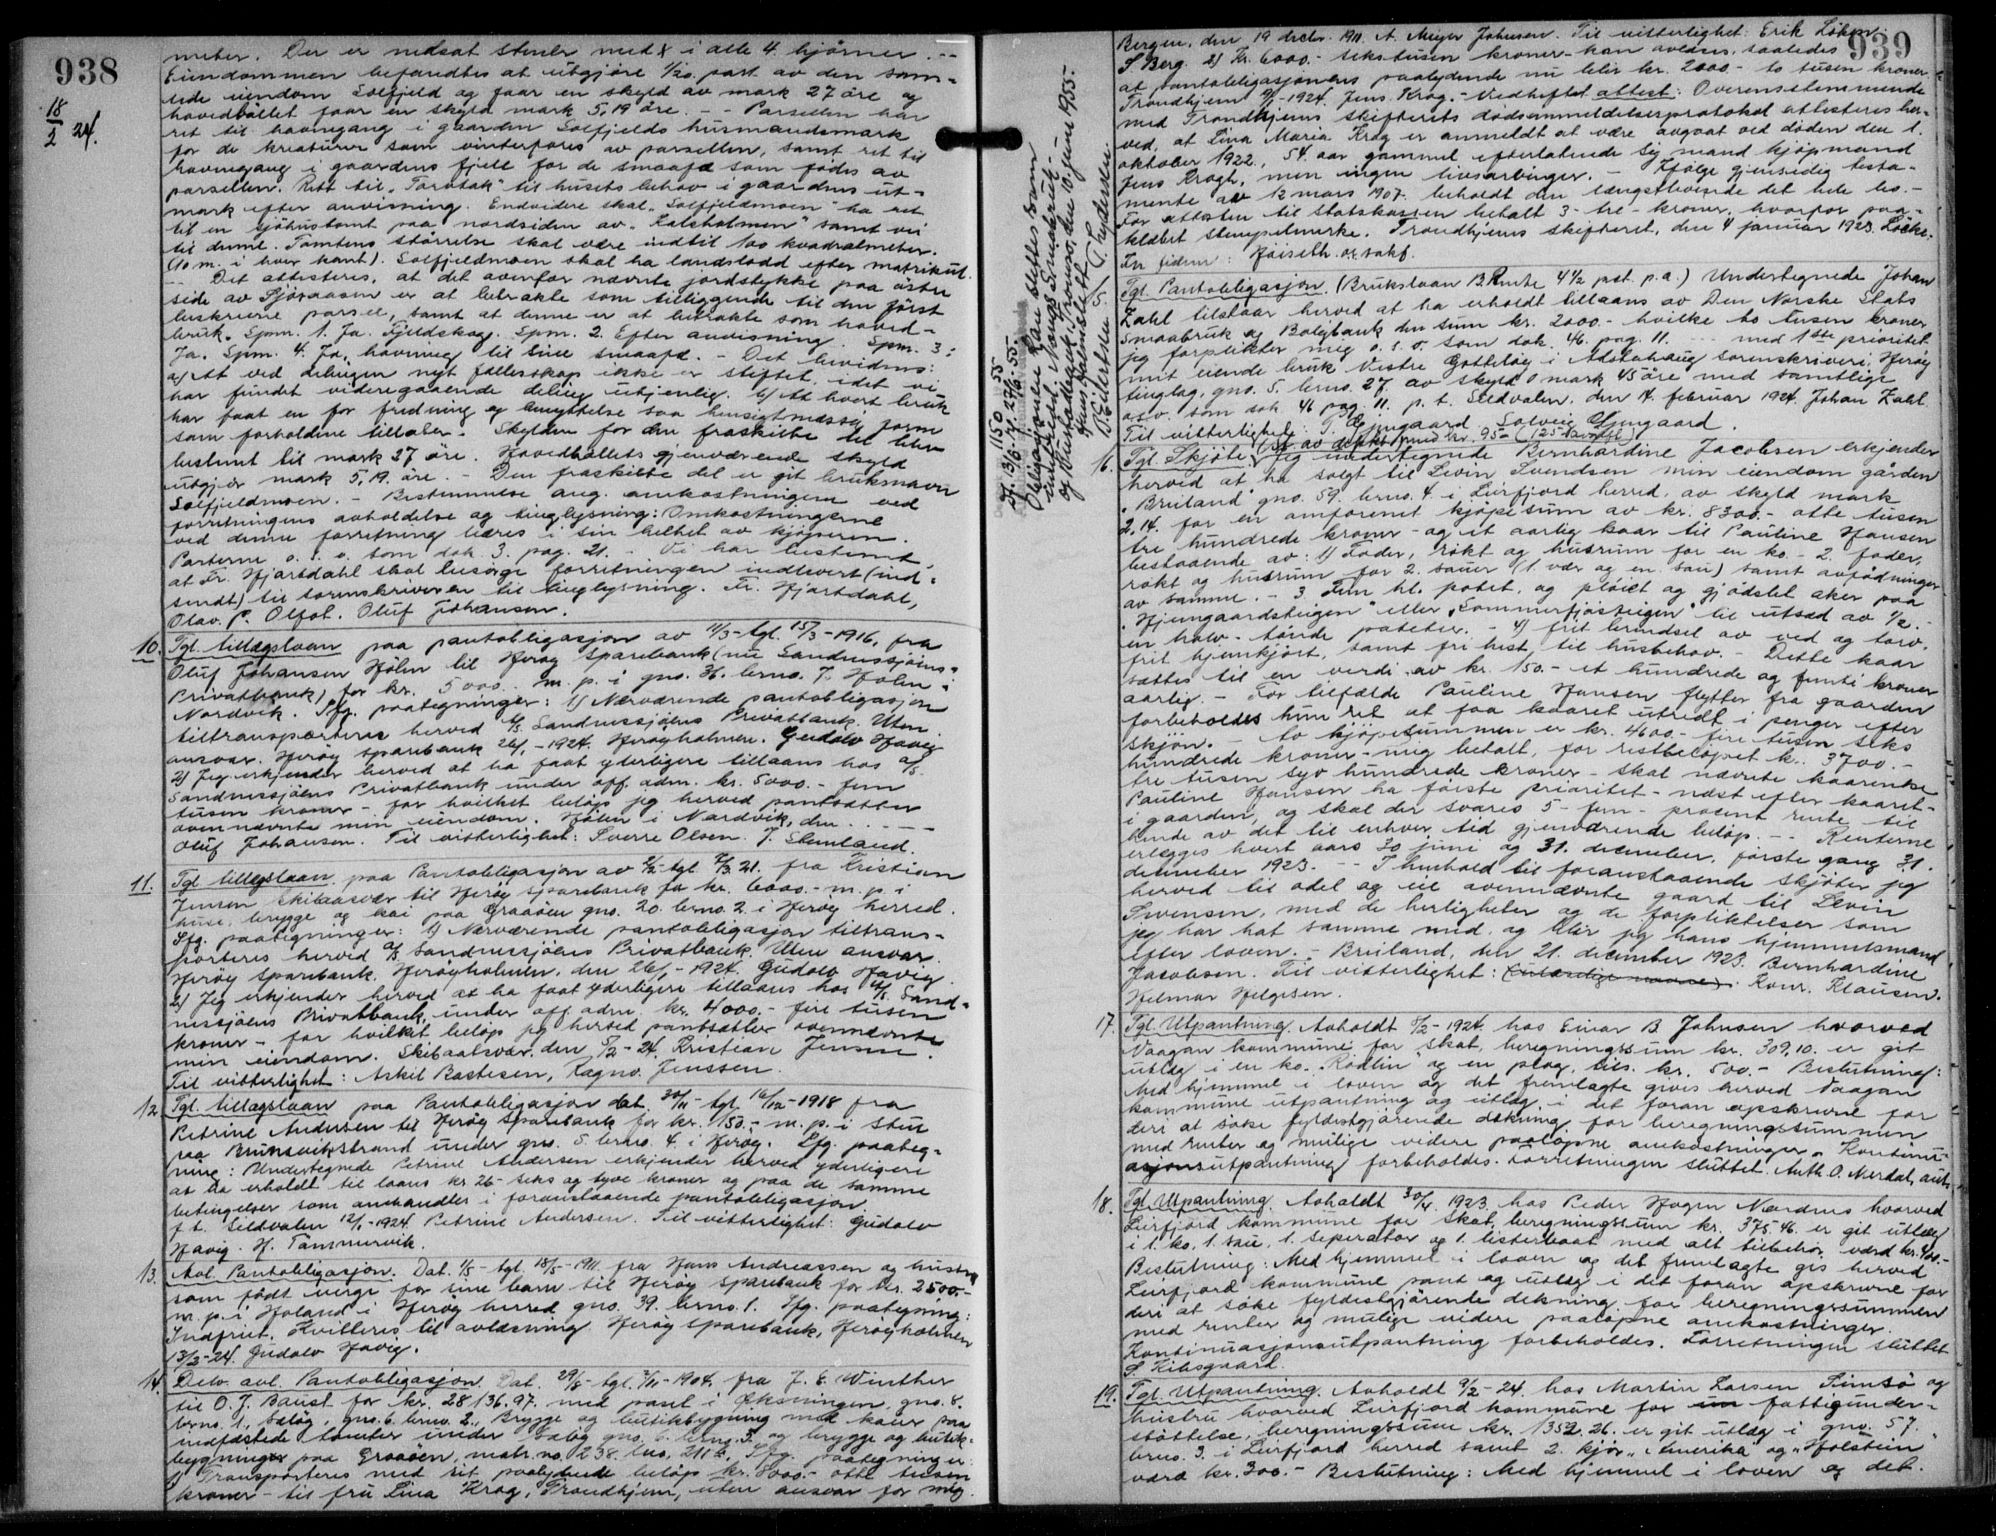 938
18/2 24.
meter. Der er nedsat stener med x i alle 4 hjørner. --
Eiendommen befandtes at utgjøre 1/20 part av den sam-
lede eiendom Solfjeld og faar en skyld av mark 27 øre og
hovedbøllet faar en skyld mark 5,19 øre. - - Parsellen har
ret til havnegang i gaarden Solfjelds husmandsmark
for de kreaturer som vinterfores av parsellen, samt ret til
havnegang i gaardens fjell for de smaafæ som fødes av
parsellen. Rett til "Torvtak" til husets behov i gaardens ut-
mark efter anvisning. Endvidere skal "Solfjeldmoen" ha ret
til en sjøhustomt paa nordsiden av "Kalvholmen" samt vei
til denne. Tomtens størrelse skal være indtil 100 kvadratmeter.
(10 m. i hver kant). Solfjeldmoen skal ha landslodd efter matrikul.
- Det attesteres, at det ovenfor nævnte jordstykke paa østre
side av Sjøraasen er at betrakte som tilliggende til den først
beskrevne parsel, samt at denne er at betrakte som hoved-
bruk. Spm. 1. Ja. Fjeldskog. Spm. 2. Efter anvisning. Spm. 3:
Ja. Spm. 4. Ja, havning til sine smaafæ. - Det bevidnes:
a) At ved delingen nyt fællesskap ikke er stiftet, idet vi
har fundet videregaaende deling utjenlig. b) At hvert bruk
har faat en for fredning og benyttelse saa hensigtmæssig form
som forholdene tillater. - Skylden for den fraskilte del blev
bestemt til mark 27 øre. Hovedbøllets gjenværende skyld
utgjør mark 5,19 øre. - Den fraskilte del er git bruksnavn
Solfjeldmoen. - Bestemmelse ang. omkostningene ved
forretningens avholdelse og tinglysning: Omkostningerne
ved denne forretning bæres i sin helhet av kjøperen.
Parterne o. s. v. som dok 3. pag. 21. - Vi har bestemt
at Fr. Hjartdahl skal besørge forretningen indlevert (ind-
sendt) til sorenskriveren til tinglysning. Fr. Hjartdahl,
Olav. P. Olfot. Oluf Johansen.
10. Tgl. tillægslaan paa pantobligasjon av 11/3- tgl. 15/3-1916, fra
Oluf Johansen Hølen til Herøy sparebank (nu Sandnessjøens
Privatbank) for kr. 5000.- m. p. i gno. 36. brno. 7. Hølen i
Nordvik. Sfg. paategninger: 1) Nærværende pantobligasjon
tiltransporteres herved A/S Sandnessjøens Privatbank. Uten
ansvar. Herøy sparebank 26/1-1924. Herøyholmen. Gudolv Havig
2) Jeg erkjender herved at ha faat yderligere tillaans hos A/S
Sandnessjøens Privatbank under off. adm. kr. 5000.- fem
tusen kroner - for hvilket beløp jeg herved pantsætter
ovennævnte min eiendom. Hølen i Nordvik, den . . - -
Oluf Johansen. Til vitterlighet: Sverre Olsen. J. Stenland.
11. Tgl. tillægslaan paa Pantobligasjon av 2/2- tgl. 7/3.21. fra Kristian
Jensen Skibaasvær til Herøy sparebank for kr. 6000.- m. p. i
huse, brygge og kai paa Graaøen gno. 20. brno. 2. i Herøy herred.
Sfg. paategninger: 1) Nærværende pantobligasjon tiltrans-
porteres herved A/S Sandnessjøens Privatbank. Uten ansvar.
Herøy sparebank. Herøyholmen, den 26/1-1924. Gudolv Havig.
2) Jeg erkjender herved at ha faat yderligere tillaans hos A/S Sand-
nessjøens Privatbank, under off. adm. kr. 4000.- fire tusen
kroner - for hvilket beløp jeg herved pantsætter ovennævnte
min eiendom. Skibaasvær den 5/2-24, Kristian Jensen.
Til vitterlighet: Askil Bastesen, Ragnv. Jenssen.
12. Tgl. tillægslaan paa Pantobligasjon dat. 30/11- tgl. 16/12-1918 fra
Petrine Andersen til Herøy sparebank for kr. 150.- m. p. i stu
paa Brunsvikstrand under gno. 5. brno. 4. i Herøy. Sfg. paateg-
ning: Undertegnede Petrine Andersen erkjender herved yderligere
at ha erholdt til laans kr 26- seks og tyve kroner og paa de samme
betingelser som omhandles i foranstaaende pantobligasjon.
p. t. Sildvalen 12/1-1924 Petrine Andersen. Til vitterlighet: Gudolv
Havig. H. Tømmervik.
13. Avl. Pantobligasjon. Dat. 1/5- tgl. 18/5-1911. fra Hans Andreassen og hustru
som født verge for sine barn til Herøy sparebank for kr. 2500.-
m. p. i Holand i Herøy herred gno. 39. brno. 1. Sfg. paategning:
Indfriet. Kvitteres til avlæsning. Herøy sparebank, Herøyholmen
13/2-24. Gudolv Havig.
14. Delv. avl. Pantobligasjon. Dat. 29/8- tgl. 3/11-1904. fra J. E. Winther
til O. J. Baust for kr. 28136,97. med pant i Øksningen, gno. 8.
brno. 1., gno. 6. brno. 2., Brygge og butikbygning med kaier paa
indfæstede tomter under gno. 6. brno. 3. og brygge og butik-
bygninger paa Graaøen, matr. no. 238. Sfg. paategninger:
1) Transporteres med ret paalydende beløp kr. 8000.- otte tusen
kroner - til fru Lina Krog, Trondhjem, uten ansvar for mig.
Df. 3/1150 55
Obligasjonen kan slettes som
innfridd. Norges Småbruk-
og Bustadbank, Tromsø, den 10. juni 1955.-
939
Bergen, den 19 decbr. 1911. A. Meyer Johnsen. Til vitterlighet: Erik Løken,
S Berg. 2) Kr. 6000.- sekstusen kroner - kan avlæses, saaledes
at pantobligasjonens paalydende nu blir kr. 2000.- to tusen kroner.
Trondhjem 9/1-1924. Jens Krog. - Vedheftet attest: Overensstemmende
med Trondhjems skifterets dødsanmeldelsesprotokol attesteres her-
ved, at Lina Maria Krog er anmeldt at være avgaat ved døden den 1.
oktober 1922., 54. aar gammel, efterlatende sig mand kjøpmand
Jens Krogh, men ingen livsarvinger. - Ifølge gjensidig testa-
mente av 12 mars 1907. beholdt den længstlevende det hele bo. -
For attesten til statskassen betalt 3- tre- kroner, hvorfor paa-
klæbet stempelmerke. Trondhjems skifteret, den 4 januar 1923. Løcke.
15. Tgl. Pantobligasjon. (Brukslaan B. Rente 4 1/2 pct. p. a.) Undertegnede Johan
Zahl tilstaar herved at ha erholdt tillaans av Den Norske Stats
Smaabruk og Boligbank den sum kr. 2000.- hvilke to tusen kroner
jeg forplikter mig o. s. v. som dok. 46. pag. 11. . . . med 1ste prioritet
mit eiende bruk Vestre Gotteløy i Alstahaug sorenskriveri, Herøy
tinglag, gno. 5. brno. 27 av skyld 0 mark 45 øre med samtlige
osv. som dok 46 pag. 11. p. t. Sildvalen, den 14. februar 1924. Johan Zahl.
Til vitterlighet: P. Lyngaard. Solveig Lyngaard.
16. Tgl. Skjøte. Jeg undertegnede Bernhardine Jacobsen erkjender
herved at ha solgt til Levin Svendsen min eiendom gården
"Breiland" gno. 59. brno. 4. i Leirfjord herred, av skyld mark
2,14. for en omforenet kjøpesum av kr. 8300.- otte tusen
tre hundrede kroner - og et aarlig kaar til Pauline Hansen
bestaaende av: 1) Foder, røkt og husrum for en ko. - 2. foder,
røkt og husrum for 2. sauer (1. vær og en sau) samt avfødninger
av samme. - 3 Fem hl. potet, og pløiet og gjødslet aker paa
"Hjemgaardsteigen" eller "Sommerfjøsteigen" til utsæd av 1/2.-
en halv - tønde poteter. - 4) frit brændsel av ved og torv,
frit hjemkjørt, samt fri hest til husbehov. - Dette kaar
sættes til en verdi av kr. 150.- et hundrede og femti kroner
aarlig. - For tilfælde Pauline Hansen flytter fra gaarden
forbeholdes hun ret at faa kaaret utredt i penger efter
skjøn. - Av kjøpesummen er kr. 4600.- fire tusen seks
hundrede kroner - mig betalt, for restbeløpet kr. 3700.-
tre tusen syv hundrede kroner - skal nævnte kaarenke
Pauline Hansen ha første prioritet - næst efter kaaret -
i gaarden, og skal der svares 5- fem - procent rente til
hende av det til enhver tid gjenværende beløp. - - Renterne
erlægges hvert aars 30 juni og 31. december, første gang 31.
december 1923. - - I henhold til foranstaaende skjøter jeg
herved til odel og eie ovennævnte gaard til Levin
Svensen, med de herligheter og de forpliktelser som
jeg har hat samme med og blir jeg hans hjemmelsmand
efter loven. - Breiland, den 21. december 1923. Bernhardine
Jacobsen. Til vitterlighet: Konr. Klausen.
Hilmar Helgesen.
17. Tgl. Utpantning. Avholdt 5/2-1924. hos Einar B. Johnsen hvorved
Vaagan kommune for skat, beregningssum kr. 309,10. er git
utlæg i en ko. "Rødlin" og en plog, tils. kr. 500.- Beslutning:
Med hjemmel i loven og det fremlagte gives herved Vaagan
kommune utpantning og utlæg i det foran opskrevne for
deri at søke fyldestgjørende dekning for beregningssummen
med renter og mulige videre paaløpne omkostninger. Kontinu-
asjonsutpantning forbeholdes. Forretningen sluttet. Anth. O. Nerdal, aut.
18. Tgl. Utpantning. Avholdt 30/4 1923 hos Peder Hagen Nærdnes hvorved
Leirfjord kommune for skat, beregningssum kr. 375,46. er git utlæg
i 1. ko, 1. sau, 1. seperator og 1. listerbaat med alt tilbehør, værd kr. 400.-
Beslutning: Med hjemmel i loven og det fremlagte gis herved
Leirfjord kommune pant og utlæg i det foran opskrevne for
deri at søke fyldestgjørende dekning for beregningssummen
med renter og mulige videre paaløpne omkostninger.
Kontinuasjonsutpantning forbeholdes. Forretningen sluttet
S. Kibsgaard.
19. Tgl. Utpantning. Avholdt 9/2-24. hos Martin Larsen Simsø og
hustru hvorved Leirfjord kommune for fattigunder-
støttelse, beregningssum kr. 1352,26. er git utlæg i gno. 57.
brno. 3. i Leirfjord herred samt 2. kjør "Amerika" og "Holstein"
værd kr. 300.- Beslutning: Med hjemmel i loven og det.